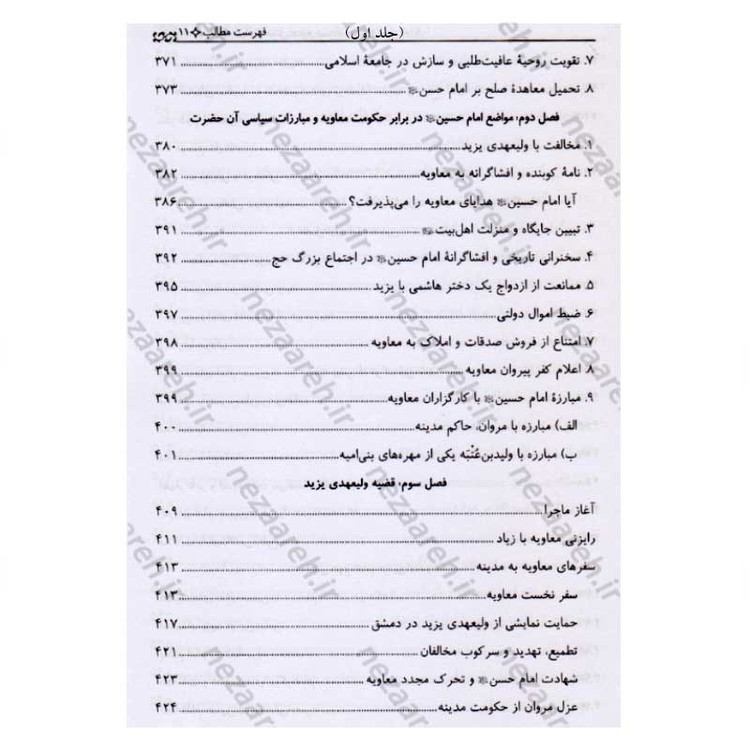 فهرست مطالب ❖ ۱۱ (جلد اول)
۷. تقویت روحیهٔ عافیت‌طلبی و سازش در جامعهٔ اسلامی ۳۷۱
۸. تحمیل معاهدهٔ صلح بر امام حسن ۳۷۳
فصل دوم، مواضع امام حسین در برابر حکومت معاویه و مبارزات سیاسی آن حضرت
۱. مخالفت با ولیعهدی یزید ۳۸۰
۲. نامهٔ کوبنده و افشاگرانه به معاویه ۳۸۲
آیا امام حسین هدایای معاویه را می‌پذیرفت؟ ۳۸۶
۳. تبیین جایگاه و منزلت اهل‌بیت ۳۹۱
۴. سخنرانی تاریخی و افشاگرانهٔ امام حسین در اجتماع بزرگ حج ۳۹۲
۵. ممانعت از ازدواج یک دختر هاشمی با یزید ۳۹۵
۶. ضبط اموال دولتی ۳۹۷
۷. امتناع از فروش صدقات و املاک به معاویه ۳۹۸
۸. اعلام کفر پیروان معاویه ۳۹۹
۹. مبارزهٔ امام حسین با کارگزاران معاویه ۳۹۹
الف) مبارزه با مروان، حاکم مدینه ۴۰۰
ب) مبارزه با ولیدبن‌عُتْبَه یکی از مهره‌های بنی‌امیه ۴۰۱
فصل سوم، قضیه ولیعهدی یزید
آغاز ماجرا ۴۰۹
رایزنی معاویه با زیاد ۴۱۱
سفرهای معاویه به مدینه ۴۱۳
سفر نخست معاویه ۴۱۳
حمایت نمایشی از ولیعهدی یزید در دمشق ۴۱۷
تطمیع، تهدید و سرکوب مخالفان ۴۲۱
شهادت امام حسن و تحرک مجدد معاویه ۴۲۳
عزل مروان از حکومت مدینه ۴۲۴
nezaareh.ir